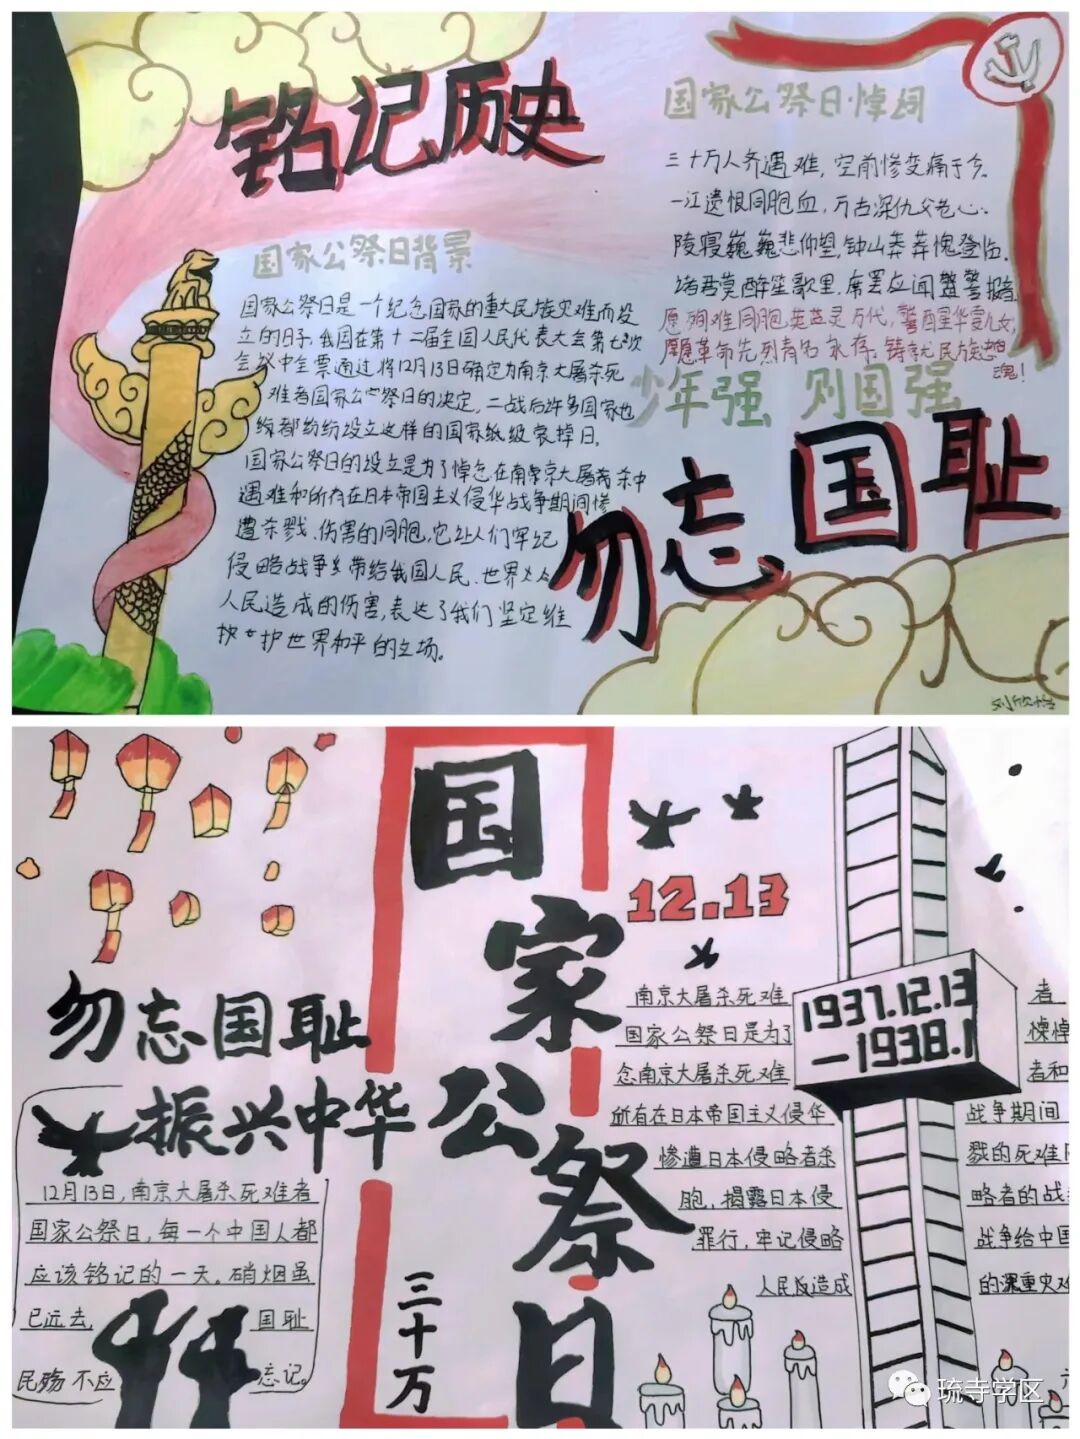 铭记历史
国家公祭日背景
国家公祭日是一个纪念国家的重大民族灾难而设
立的日子,我国在第十二届全国人民代表大会第七次
会议中全票通过将12月13日确定为南京大屠杀死
难者国家公祭日的决定,二战后许多国家也
都纷纷设立这样的国家级哀掉日。
国家公祭日的设立是为了悼念在南京大屠杀中
遇难和所有在日本帝国主义侵华战争期间惨
遭杀戮、伤害的同胞,它让人们牢记
侵略战争带给我国人民、世界
人民造成的伤害,表达了我们坚定维
护世界和平的立场。
国家公祭日·悼词
三十万人齐遇难,空前惨变痛于今.
一江遗恨同胞血,万古深仇父老心.
陵寝巍巍悲仰望,钟山莽莽愧登临.
诸君莫醉笙歌里,席罢应闻警报音.
愿殉难同胞,英灵万代,警醒华夏儿女,
愿革命先烈青名永存,铸就民族
魂!
少年强 则国强
勿忘国耻
国家公祭日
12.13
勿忘国耻
振兴中华
12月13日,南京大屠杀死难者
国家公祭日,每一个中国人都
应该铭记的一天。硝烟虽
已远去, 国耻
民殇不应 忘记。
三十万
1937.12.13
—1938.1
南京大屠杀死难 者
国家公祭日是为了 悼
念南京大屠杀死难 者和
所有在日本帝国主义侵华 战争期间
惨遭日本侵略者杀 戮的死难同
胞,揭露日本侵 略者的战
罪行,牢记侵略 战争给中国
人民造成 的深重灾难
琉寺学区